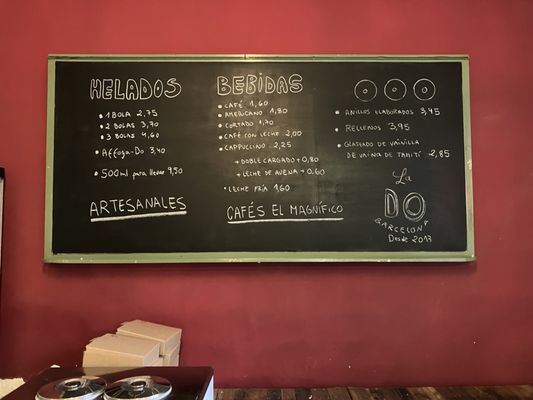 HELADOS
• 1 BOLA 2,75
• 2 BOLAS 3,70
• 3 BOLAS 4,60
• Affoga-Do 3,40
• 500ml para llevar 9,50
ARTESANALES
BEBIDAS
• CAFÉ 1,60
• AMERICANO 1,80
• CORTADO 1,70
• CAFÉ CON LECHE 2,00
• CAPPUCCINO 2,25
+ DOBLE CARGADO +0,80
+ LECHE DE AVENA +0,60
• LECHE FRÍA 1,60
CAFÉS EL MAGNÍFICO
• ANILLOS ELABORADOS 3,45
• RELLENOS 3,95
• GLASEADO DE VAINILLA
DE VAINA DE TAHITÍ 2,85
La
DO
BARCELONA
Desde 2013